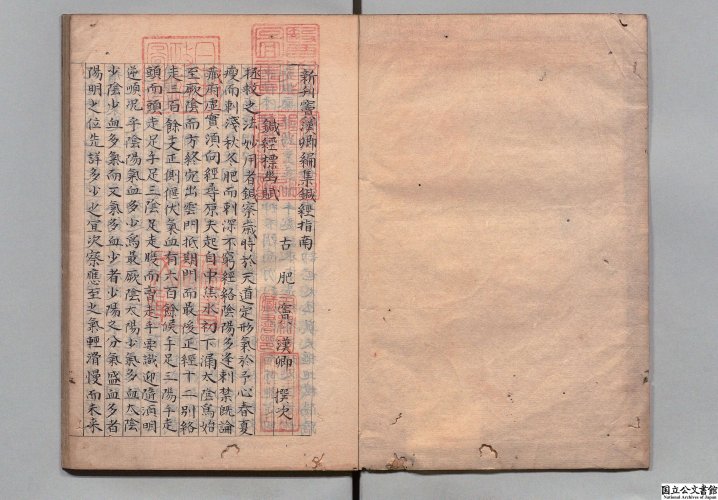 新刋竇漢卿編集鍼經指南
古肥 竇 漢卿 撰次
鍼經標幽賦
拯救之法妙用者鍼察歲時於天道定形氣於予心春夏
瘦而刺淺秋冬肥而刺深不窮經絡陰陽多逢刺禁既論
藏府虛實須向經尋原夫起自中焦水初下漏太陰爲始
至厥陰而方終穴出雲門抵期門而最後正經十二別絡
走三百餘支正側偃伏氣血有六百餘候手足三陽手走
頭而頭走足手足三陰足走腹而胷走手要識迎隨須明
逆順况乎陰陽氣血多少爲最厥陰太陽少氣多血太陰
少陰少血多氣而又氣多血少者少陽之分氣盛血多者
陽明之位先詳多少之宜次察應至之氣輕滑慢而未來
国立公文書館
National Archives of Japan